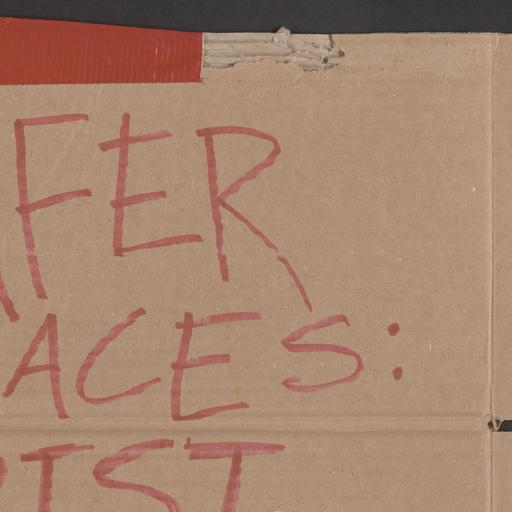 AFER
ACES:
RIST